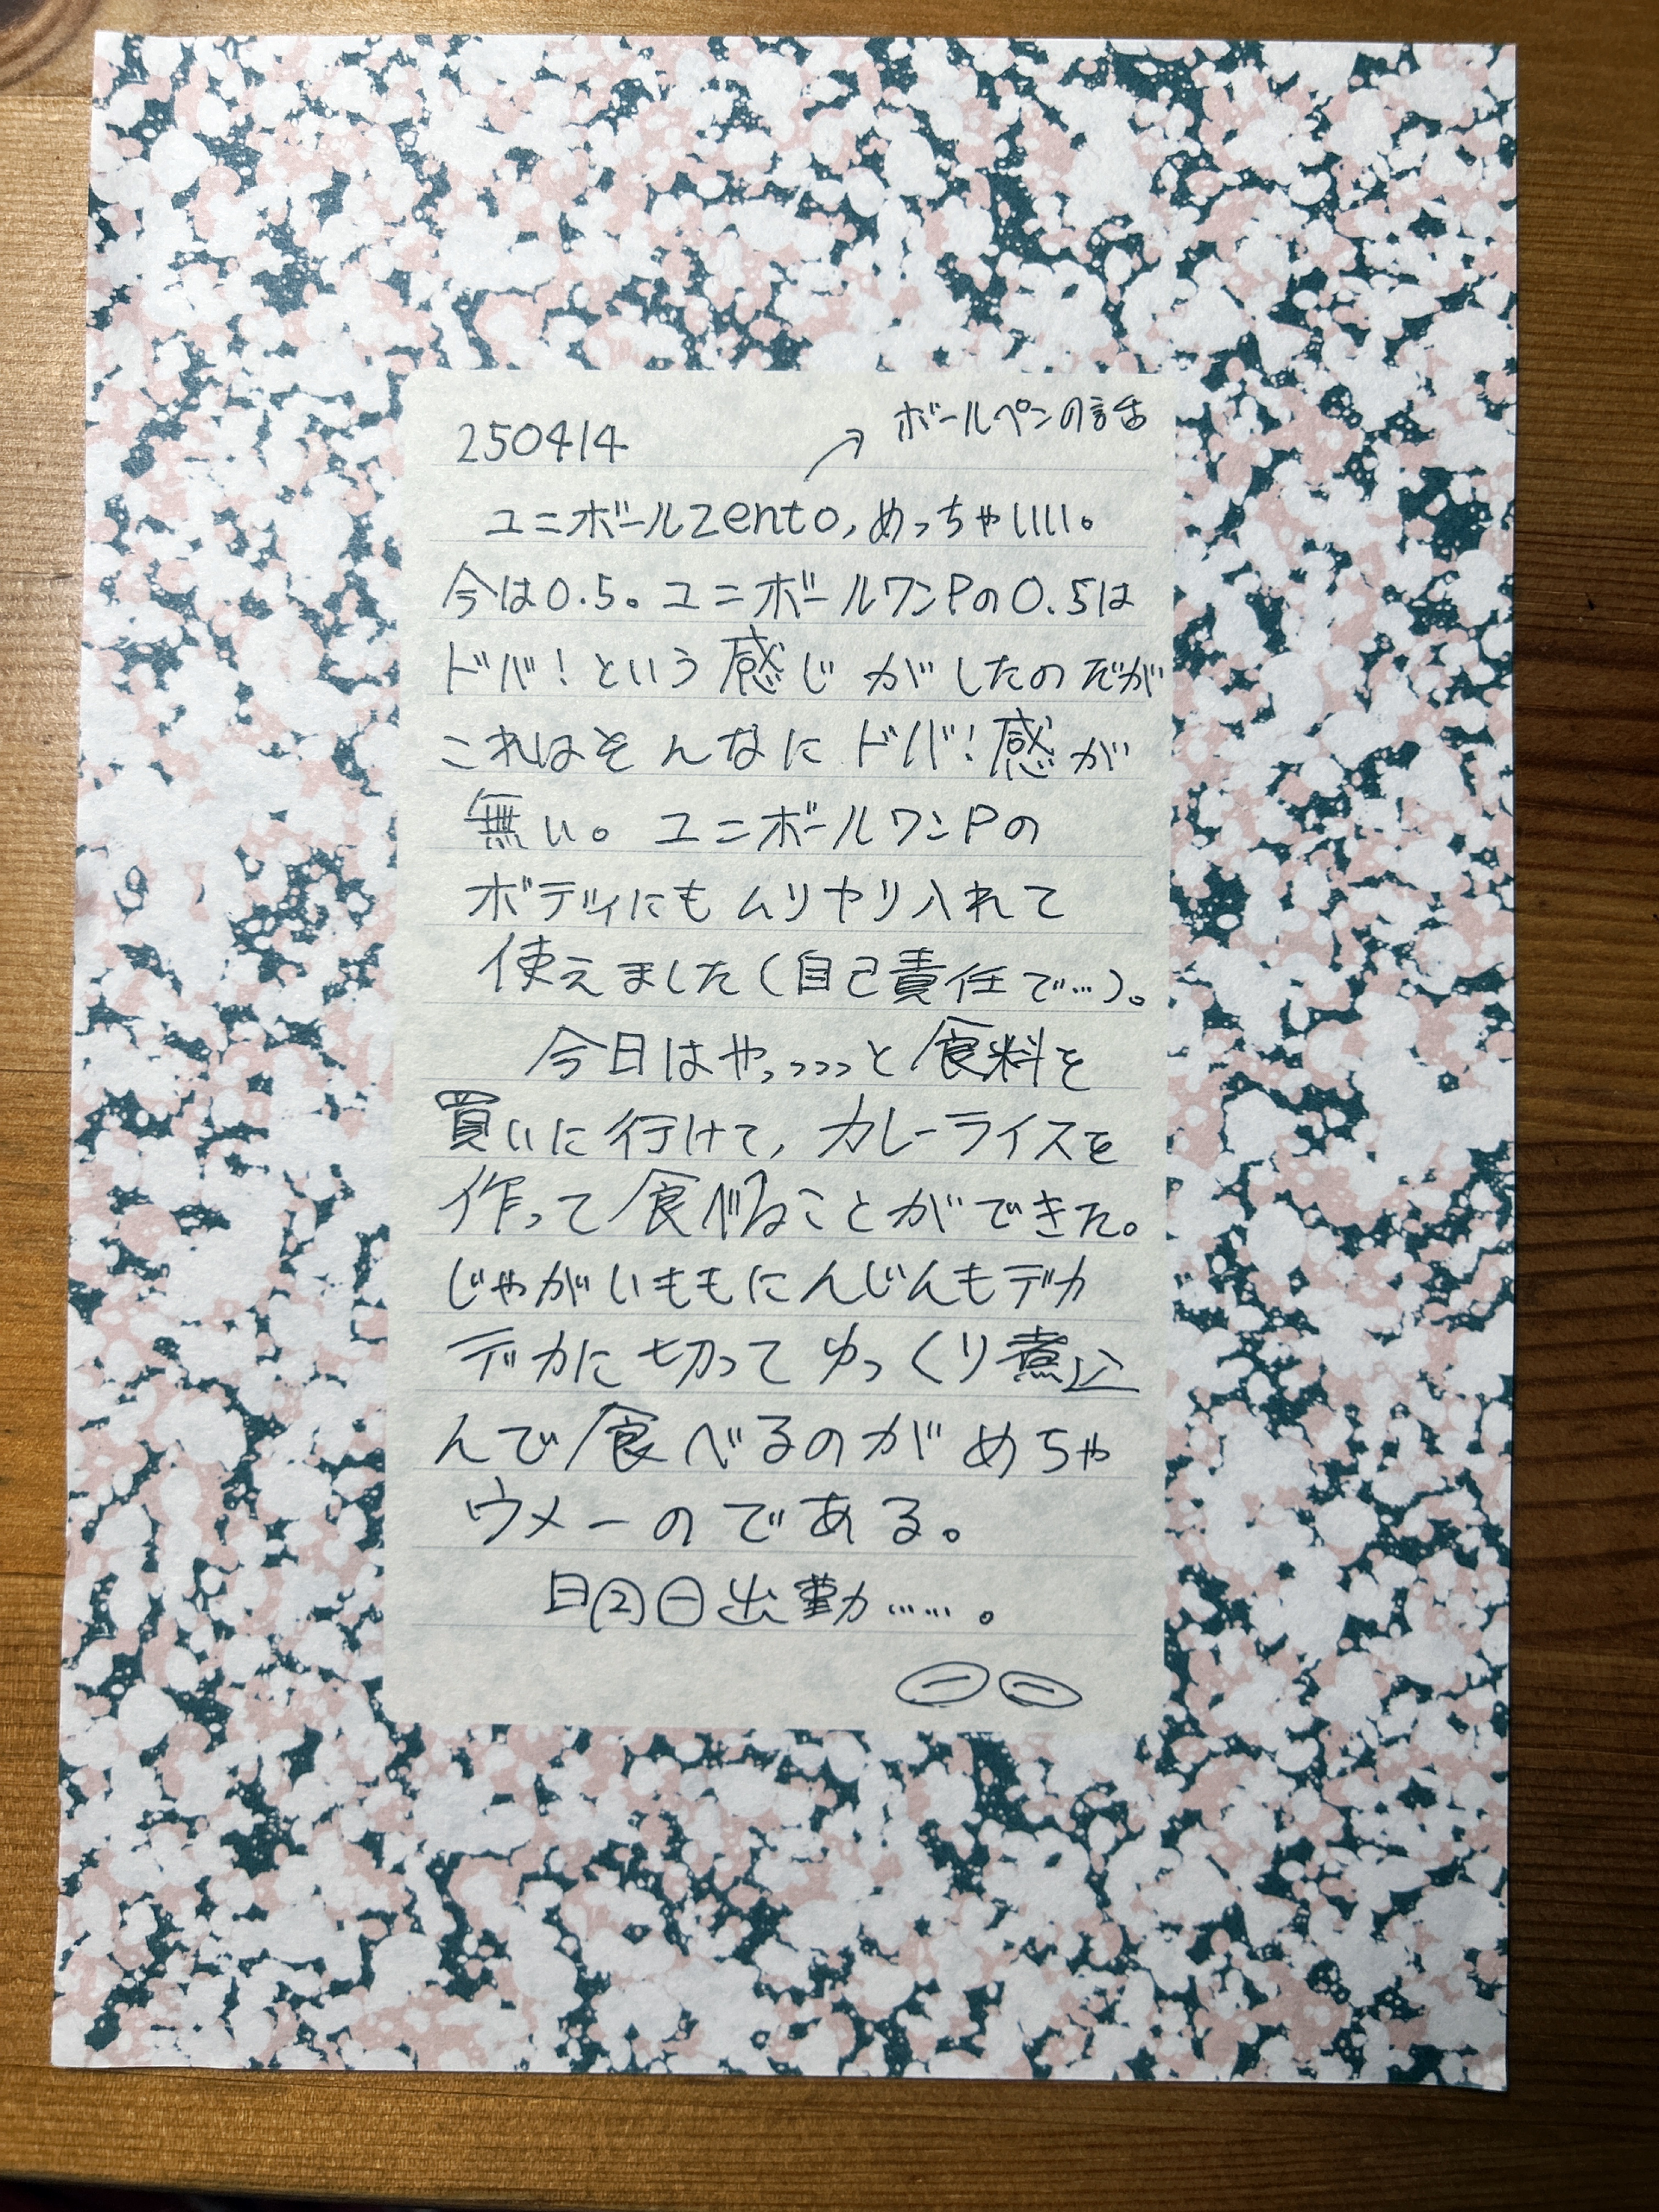 250414
ボールペンの話
ユニボールZento,めっちゃいいい。
今は0.5。ユニボールワンPの0.5は
ドバ!という感じがしたのだが
これはそんなにドバ!感が
無い。ユニボールワンPの
ボディにもムリヤリ入れて
使えました(自己責任で…)。
今日はやっっっっと食料を
買いに行けて,カレーライスを
作って食べることができた。
じゃがいももにんじんもデカ
デカに切ってゆっくり煮込
んで食べるのがめちゃ
ウメーのである。
明日出勤……。